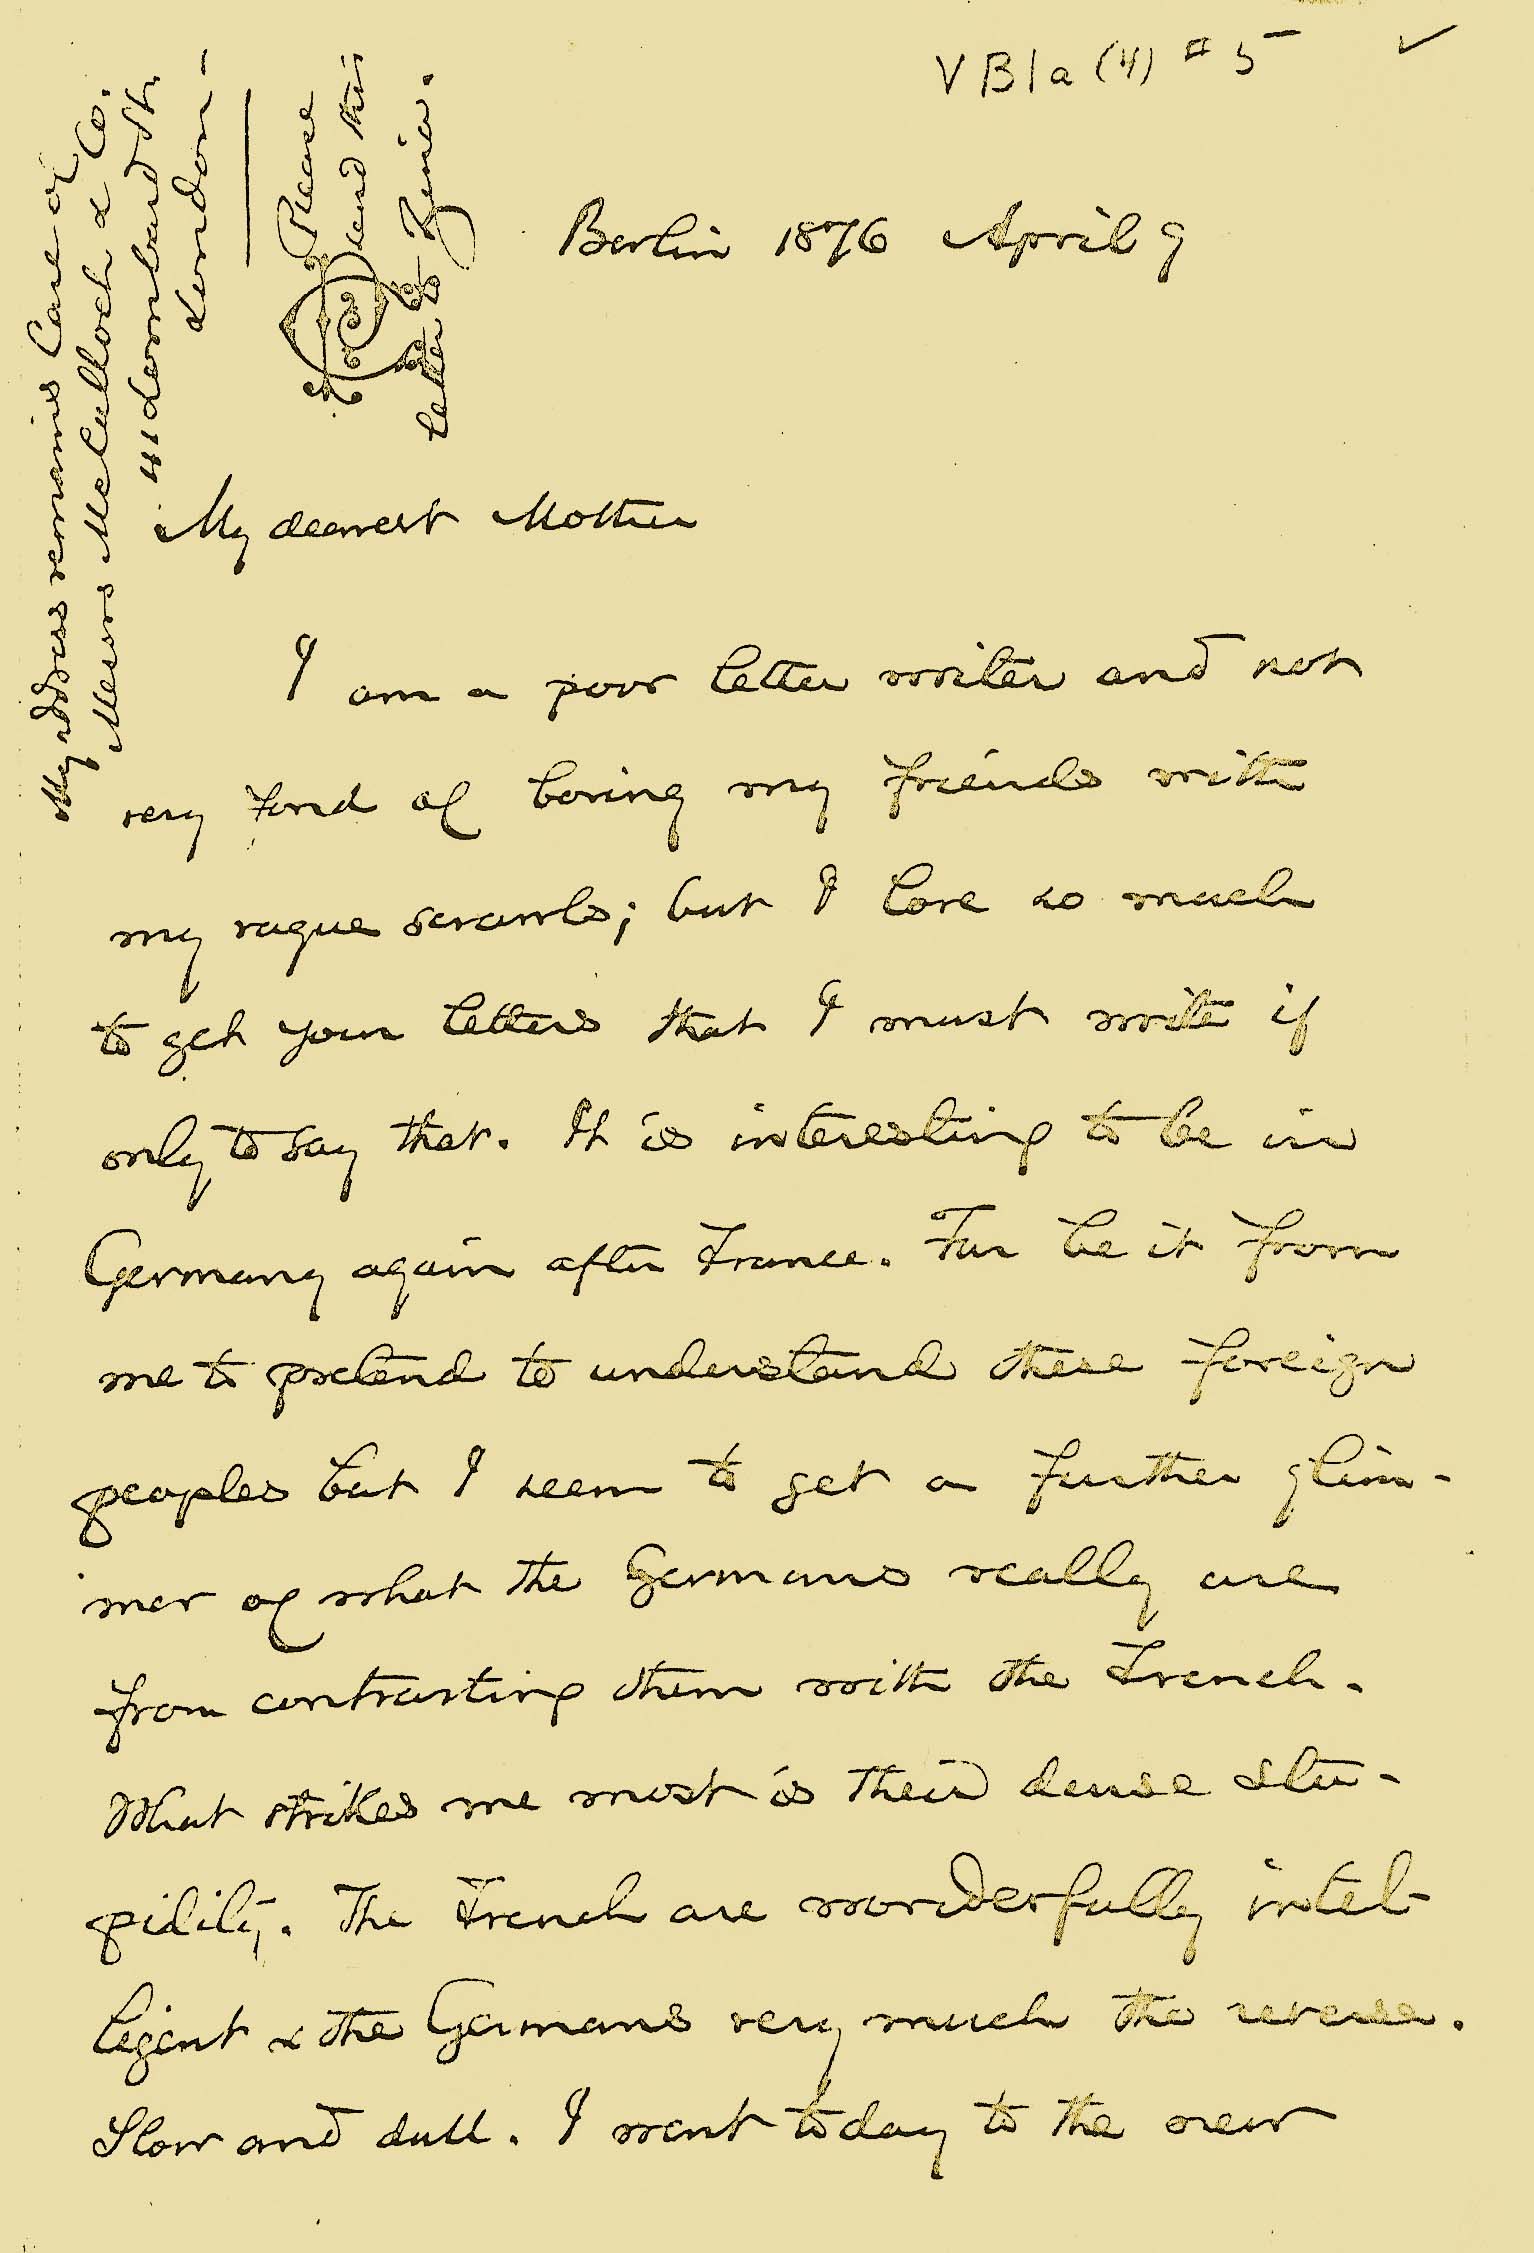 VB1a(4) #5 ✓
My address remains Care of
Messrs McCulloch & Co.
41 Lombard St.
London—
Please
send this
letter to Zina.
Berlin 1876 April 9
My dearest Mother
I am a poor letter writer and not
very fond of boring my friends with
my vague scrawls; but I love so much
to get your letters that I must write if
only to say that. It is interesting to be in
Germany again after France. Far be it from
me to pretend to understand these foreign
peoples but I seem to get a further glim-
mer of what the Germans really are
from contrasting them with the French.
What strikes me most is their dense stu-
pidity. The French are wonderfully intel-
ligent & the Germans very much the reverse.
Slow and dull. I went today to the new